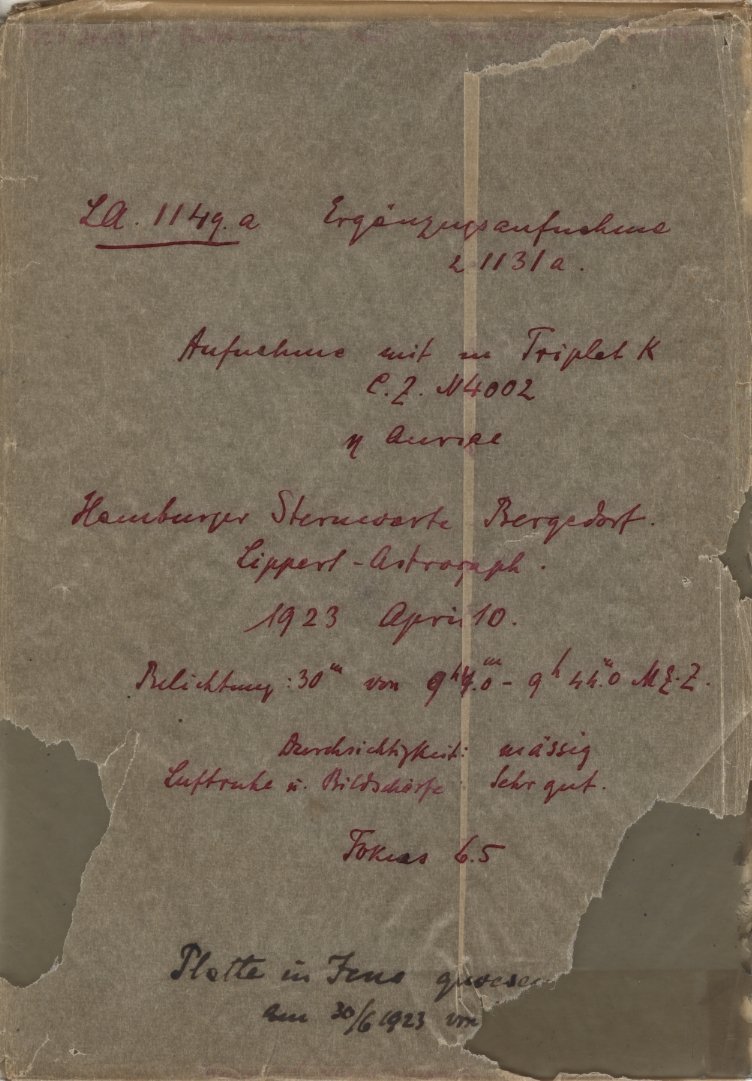 LA. 1149.a Ergänzugsaufnahme
z 1131a.
Aufnahme mit m Triplet K
C.Z. N4002
η Aurige
Hamburger Sternwarte Bergedorf.
Lippert-Astrograph.
1923 April 10.
Belichtung: 30ᵐ von 9ʰ ᵐ.0 - 9ʰ 44ᵐ.0 M.E.Z.
Durchsichtigkeit: mässig
Luftruhe u. Bildschärfe Sehr gut.
Fokus 6.5
Platte in Jena gewesen
am 30/6 1923 von